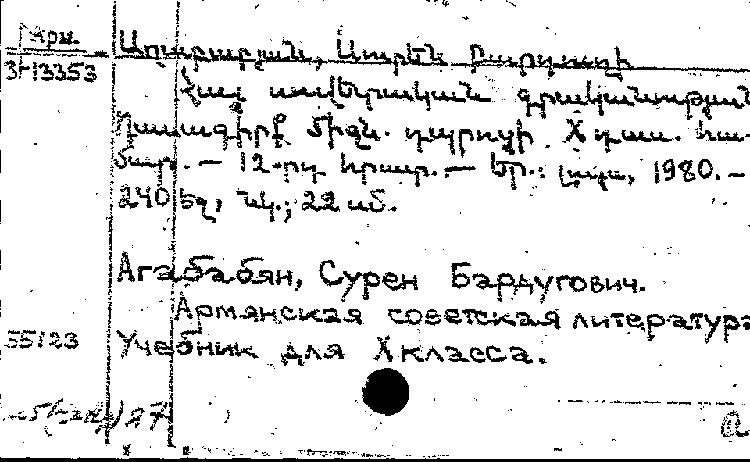 Арм.
3-13353
Աղաբաբյան, Սուրեն Բարդուղի
Հայ սովետական գրականություն
Դասագիրք միջն. դպրոցի X դաս. հա-
մար. — 12-րդ հրատ. — Եր.: Լույս, 1980. —
240 էջ, նկ.; 22 սմ.
Агабабян, Сурен Бардугович.
Армянская советская литература
55123 Учебник для X класса.
27